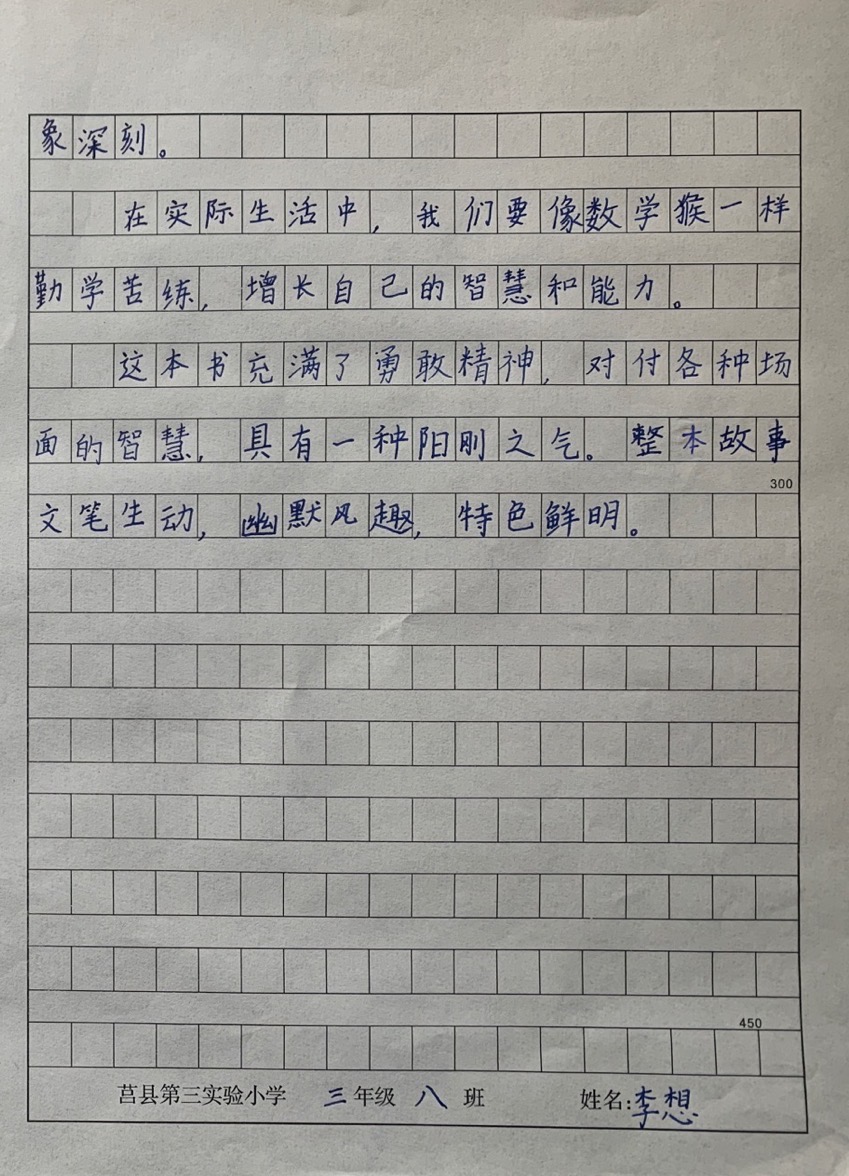 象深刻。
在实际生活中，我们要像数学猴一样
勤学苦练，增长自己的智慧和能力。
这本书充满了勇敢精神，对付各种场
面的智慧，具有一种阳刚之气。整本故事
300
文笔生动，幽默风趣，特色鲜明。
450
莒县第三实验小学 三年级 八 班 姓名:李想